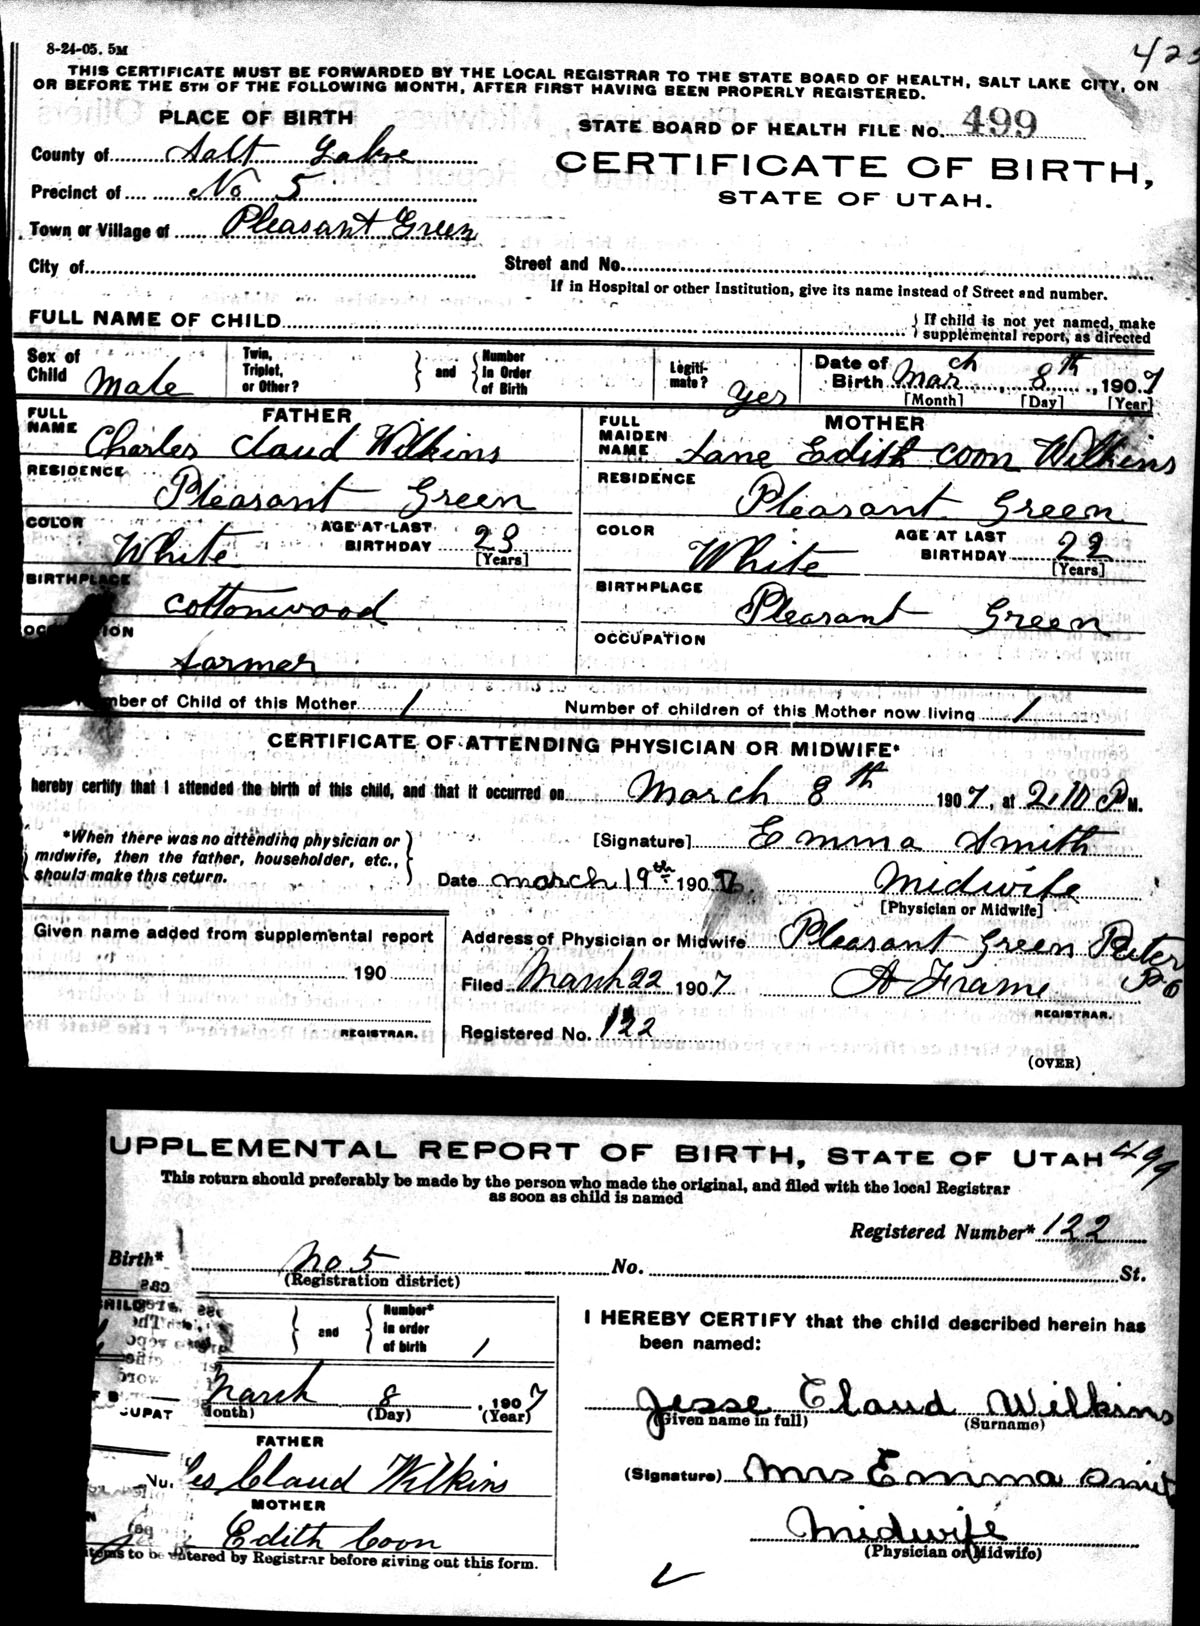 8-24-05. 5M
423
THIS CERTIFICATE MUST BE FORWARDED BY THE LOCAL REGISTRAR TO THE STATE BOARD OF HEALTH, SALT LAKE CITY, ON
OR BEFORE THE 5TH OF THE FOLLOWING MONTH, AFTER FIRST HAVING BEEN PROPERLY REGISTERED.
PLACE OF BIRTH
STATE BOARD OF HEALTH FILE No. 499
County of Salt Lake
CERTIFICATE OF BIRTH,
Precinct of No 5
STATE OF UTAH.
Town or Village of Pleasant Green
City of
Street and No.
If in Hospital or other Institution, give its name instead of Street and number.
FULL NAME OF CHILD
} If child is not yet named, make
supplemental report, as directed
Sex of Child Male
Twin, Triplet, or Other? } and { Number in Order of Birth
Legiti-mate? Yes
Date of Birth March 8th, 1907
[Month] [Day] [Year]
FATHER
FULL NAME Charles Claud Wilkins
MOTHER
FULL MAIDEN NAME Jane Edith Coon Wilkins
RESIDENCE Pleasant Green
RESIDENCE Pleasant Green
COLOR White
AGE AT LAST BIRTHDAY 23 [Years]
COLOR White
AGE AT LAST BIRTHDAY 22 [Years]
BIRTHPLACE Cottonwood
BIRTHPLACE Pleasant Green
OCC ION farmer
OCCUPATION
mber of Child of this Mother 1
Number of children of this Mother now living 1
CERTIFICATE OF ATTENDING PHYSICIAN OR MIDWIFE*
hereby certify that I attended the birth of this child, and that it occurred on March 8th 1907, at 2,10 P M.
*When there was no attending physician or
midwife, then the father, householder, etc.,
should make this return.
[Signature] Emma Smith
Date March 19th 1907
Midwife
[Physician or Midwife]
Given name added from supplemental report
190
REGISTRAR.
Address of Physician or Midwife Pleasant Green
Filed March 22 1907
A Frame
REGISTRAR.
Registered No. 122
(OVER)
UPPLEMENTAL REPORT OF BIRTH, STATE OF UTAH 499
This return should preferably be made by the person who made the original, and filed with the local Registrar
as soon as child is named
Registered Number* 122
Birth* No 5
No. St.
(Registration district)
} and { Number* in order of birth 1
I HEREBY CERTIFY that the child described herein has
been named:
March 8, 1907
onth) (Day) (Year)
CUPAT
Jesse Claud Wilkins
(Given name in full) (Surname)
FATHER
es Claud Wilkins
(Signature) Mrs Emma Smit
MOTHER
Edith Coon
Midwife
(Physician or Midwife)
items to be entered by Registrar before giving out this form.